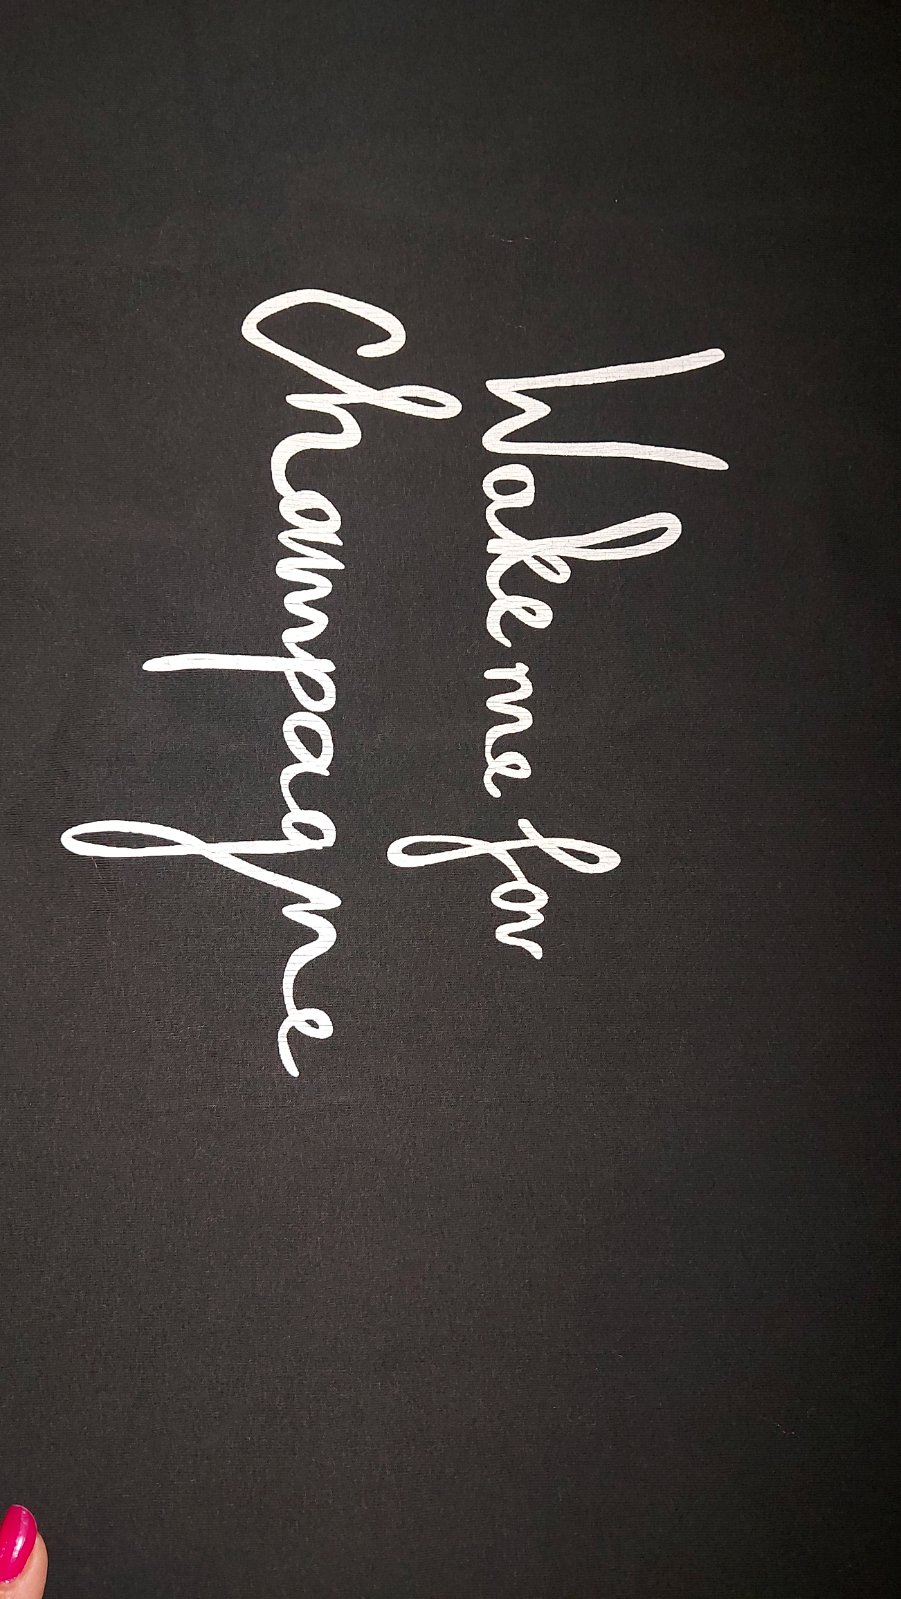 Wake me for
Champagne